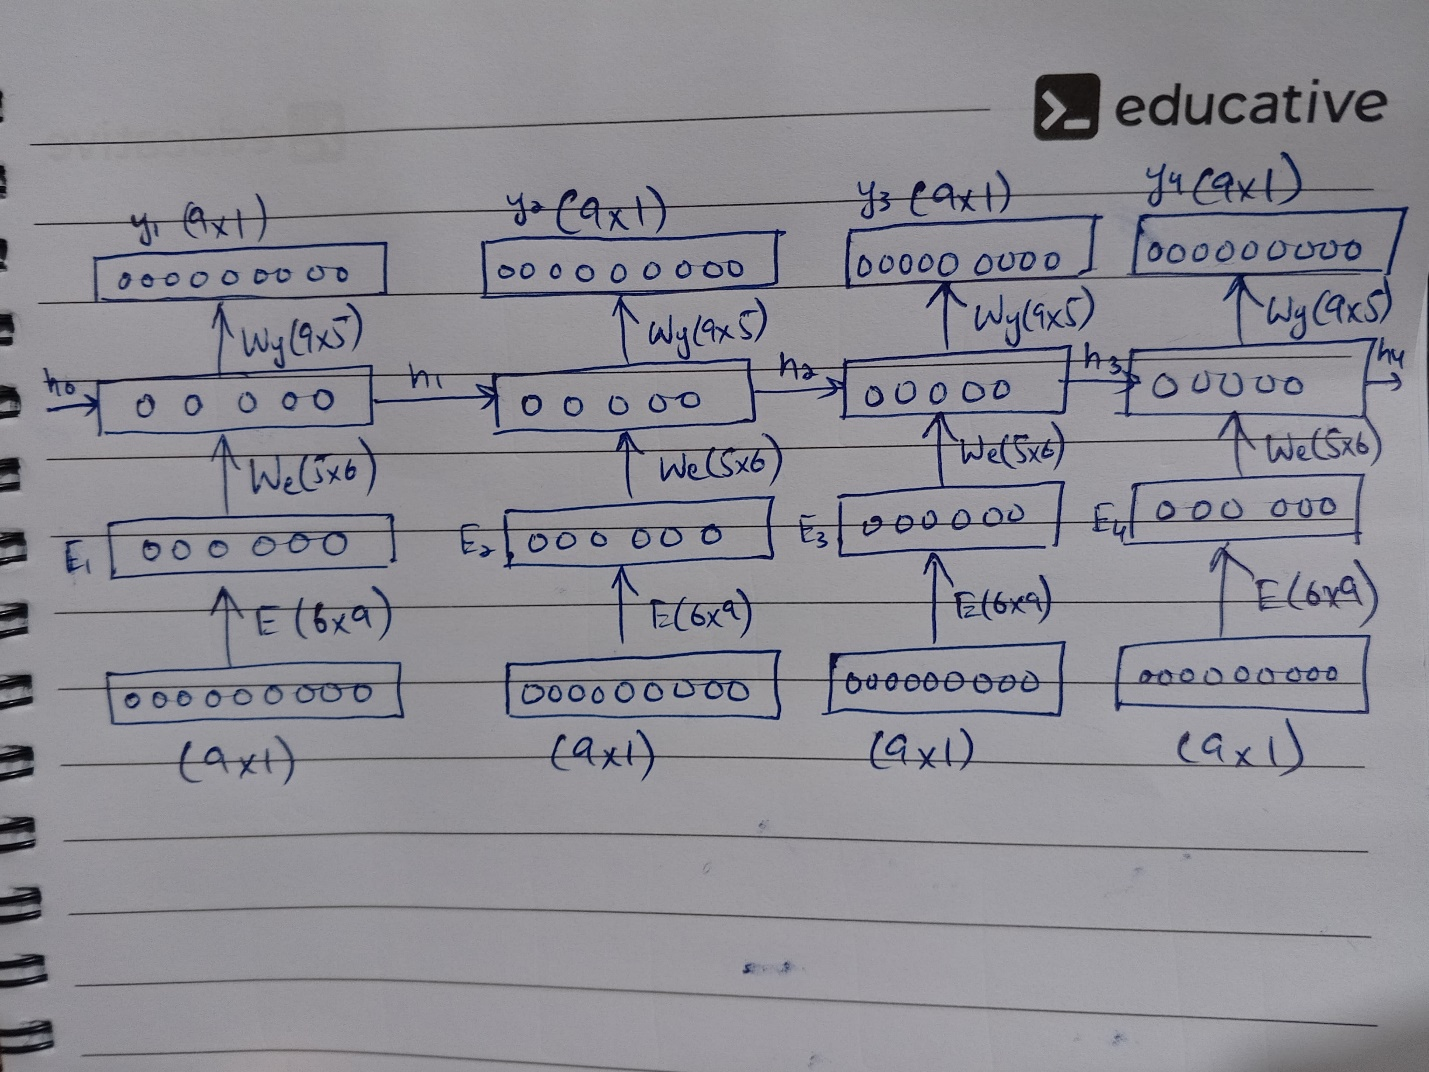 educative
y₁ (9x1) y₂ (9x1) y₃ (9x1) y₄ (9x1)
000000000 000000000 000000000 000000000
Wy(9x5) Wy(9x5) Wy(9x5) Wy(9x5)
h₀ h₁ h₂ h₃ h₄
00000 00000 00000 00000
We(5x6) We(5x6) We(5x6) We(5x6)
E₁ 000000 E₂ 000000 E₃ 000000 E₄ 000000
E (6x9) E(6x9) E(6x9) E(6x9)
000000000 000000000 000000000 000000000
(9x1) (9x1) (9x1) (9x1)